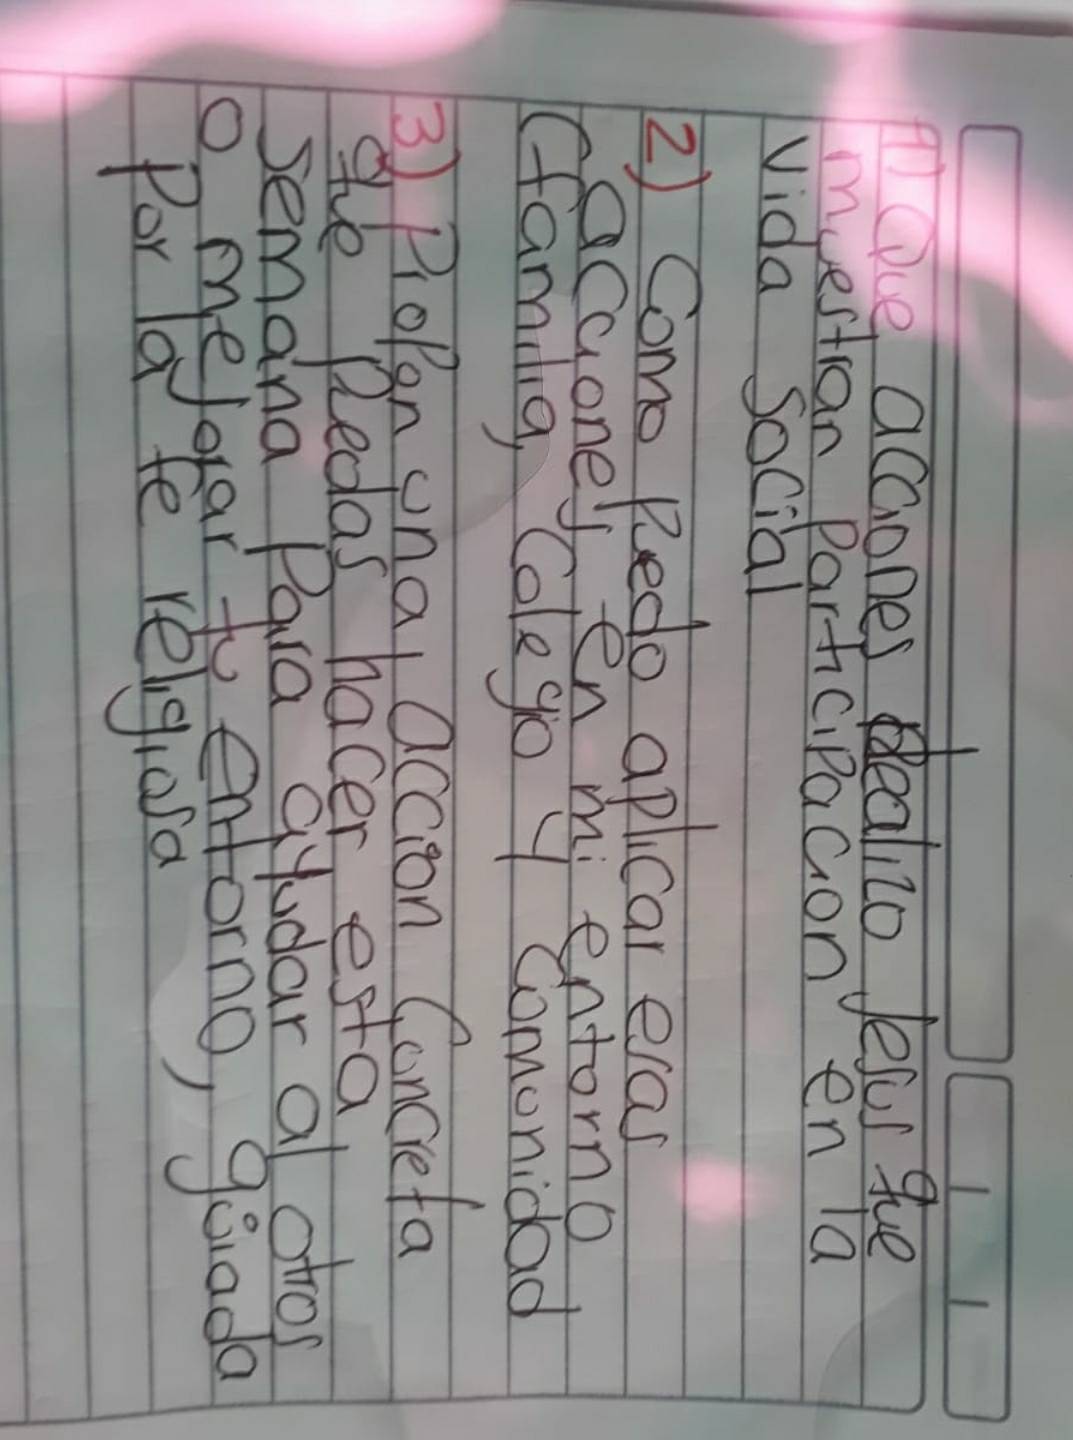 1) Que acciones realizo Jesus que
muestran participacion en la
vida social
2) Como Puedo aplicar esas
acciones en mi entorno
(familia, Colegio y Comunidad
3) Propon una acción Concreta
que Puedas hacer esta
Semana Para ayudar a otros
o mejorar tu entorno, guiada
Por la fe religiosa